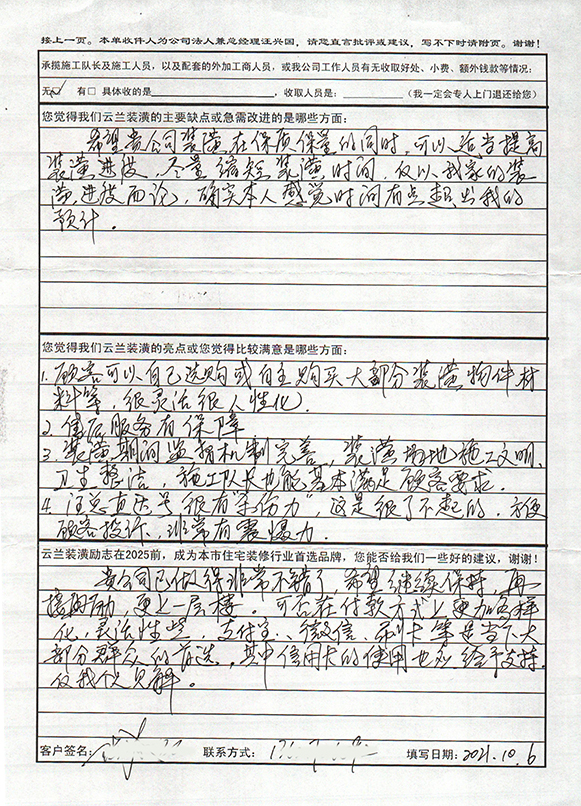 接上一页。本单收件人为公司法人兼总经理汪兴国，请您直言批评或建议，写不下时请附页。谢谢！
承揽施工队长及施工人员，以及配套的外加工商人员，或我公司工作人员有无收取好处、小费、额外钱款等情况：
无☑ 有□ 具体收的是________________，收取人员是：__________（我一定会专人上门退还给您）
您觉得我们云兰装潢的主要缺点或急需改进的是哪些方面：
希望贵公司装潢在保质保量的同时，可以适当提高
装潢进度，尽量缩短装潢时间，仅以我家的装
潢进度而论，确实本人感觉时间有点超出我的
预计。
您觉得我们云兰装潢的亮点或您觉得比较满意是哪些方面：
1. 顾客可以自己选购或自主购买大部分装潢物件材
料等，很灵活很人性化。
2. 售后服务有保障
3. 装潢期间监督机制完善，装潢场地施工文明、
卫生整洁，施工队长也能基本满足顾客要求。
4. 汪总直达号很有“杀伤力”，这是很了不起的，方便
顾客投诉，非常有震慑力。
云兰装潢励志在2025前，成为本市住宅装修行业首选品牌，您能否给我们一些好的建议，谢谢！
贵公司已做得非常不错了，希望继续保持，再
接再励，更上一层楼。可否在付款方式上更加多样
化，灵活性些，支付宝、微信、刷卡等是当下大
部分群众的首选，其中信用卡的使用也必给予支持，
仅我个人见解。
客户签名： 联系方式： 填写日期：2021.10.6